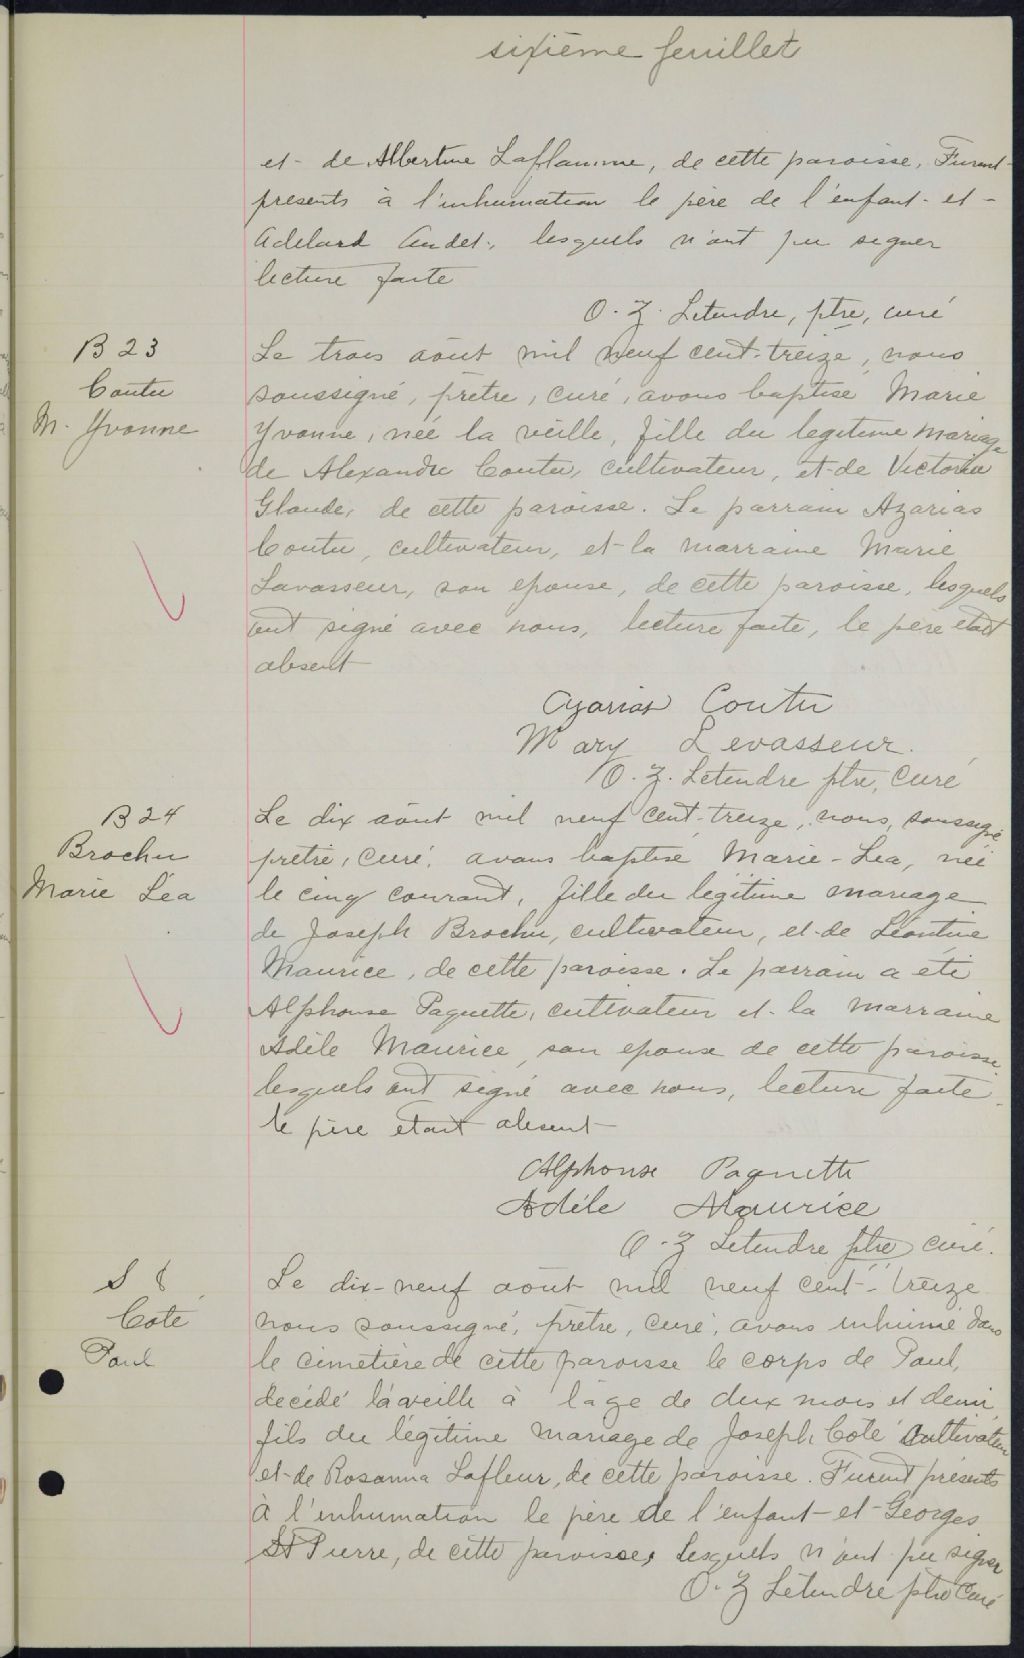 sixième feuillet
et de Albertine Laflamme, de cette paroisse. Furent
presents à l'inhumation le père de l'enfant et
Adelard Audet, lesquels n'ont pu signer
lecture faite
O. Z. Letendre, ptre, curé
B 23
Coutu
M. Yvonne
Le trois août mil neuf cent-treize, nous
soussigné, prêtre, curé, avons baptisé Marie
Yvonne, née la veille, fille du legitime mariage
de Alexandre Coutu, cultivateur, et de Victoria
Glaude, de cette paroisse. Le parrain Azarias
Coutu, cultivateur, et la marraine Marie
Lavasseur, son epouse, de cette paroisse, lesquels
ont signé avec nous, lecture faite, le père etait
absent
Azarias Coutu
Mary Levasseur.
O. Z. Letendre ptre, curé
B 24
Brochu
Marie Léa
Le dix août mil neuf cent-treize, nous, soussigné,
prêtre, curé, avons baptisé Marie-Léa, née
le cinq courant, fille du légitime mariage
de Joseph Brochu, cultivateur, et de Léontine
Maurice, de cette paroisse. Le parrain a eté
Alphonse Paquette, cultivateur et la marraine
Adèle Maurice, son epouse de cette paroisse
lesquels ont signé avec nous, lecture faite
le père etait absent
Alphonse Paquette
Adèle Maurice
O. Z Letendre ptre curé.
S 8
Coté
Paul
Le dix-neuf août mil neuf cent-treize
nous soussigné, prêtre, curé, avons inhumé dans
le cimetière de cette paroisse le corps de Paul,
decédé la veille à l'age de deux mois et demi
fils du légitime mariage de Joseph Coté cultivateur
et de Rosanna Lafleur, de cette paroisse. Furent présents
à l'inhumation le père de l'enfant et Georges
St Pierre, de cette paroisse, lesquels n'ont pu signer
O. Z Letendre ptre curé